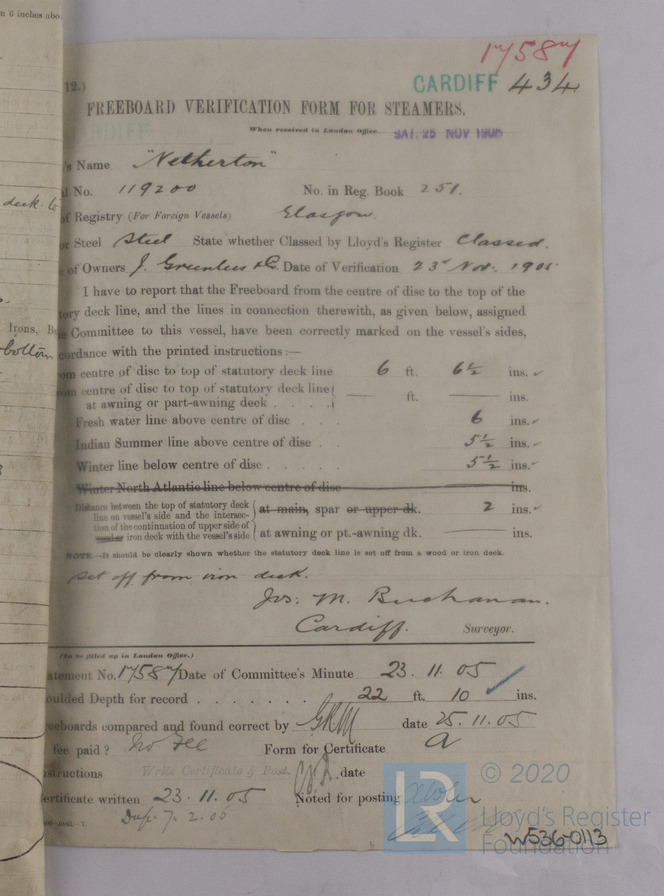 n 6 inches abo
17587
12.)
CARDIFF 434
FREEBOARD VERIFICATION FORM FOR STEAMERS.
CARDIFF
When received in London Office. SAT. 25 NOV 1905
's Name "Netherton"
l No. 119200 No. in Reg. Book 251.
of Registry (For Foreign Vessels) Glasgow
deck to
or Steel Steel State whether Classed by Lloyd's Register Classed.
of Owners J. Greenlees & Co. Date of Verification 23rd Nov. 1905
I have to report that the Freeboard from the centre of disc to the top of the
tory deck line, and the lines in connection therewith, as given below, assigned
Irons, B
e Committee to this vessel, have been correctly marked on the vessel's sides,
bottom
cordance with the printed instructions:—
om centre of disc to top of statutory deck line 6 ft. 6½ ins.
om centre of disc to top of statutory deck line
at awning or part-awning deck . . . . — ft. — ins.
Fresh water line above centre of disc . . . 6 ins.
Indian Summer line above centre of disc . . 5½ ins.
Winter line below centre of disc . . . . . 5½ ins.
Winter North Atlantic line below centre of disc ins.
Distance between the top of statutory deck
line on vessel's side and the intersec-
tion of the continuation of upper side of
iron deck with the vessel's side
at main, spar or upper dk. 2 ins.
at awning or pt.-awning dk. — ins.
NOTE.—It should be clearly shown whether the statutory deck line is set off from a wood or iron deck.
Set off from iron deck.
Jos. M. Buchanan.
Cardiff. Surveyor.
(To be filled up in London Office.)
atement No. 17587 Date of Committee's Minute 23.11.05
oulded Depth for record . . . . . . . 22 ft. 10 ins.
eeboards compared and found correct by GRM date 25.11.05
fee paid? No Fee Form for Certificate a
structions Write Certificate & Post. date
ertificate written 23.11.05 Noted for posting
Dup. 7.2.06
LR
© 2020
Lloyd's Register
Foundation
W536-0113